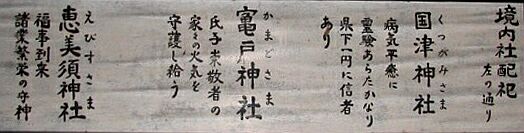 境内社配祀
左の通り
くつがみさま
国津神社
病気平癒に
霊験あらたかなり
県下一円に信者
あり
かまどさま
竈戸神社
氏子崇敬者の
家々の火気を
守護し給う
えびすさま
恵美須神社
福事到来
諸業繁栄の守神